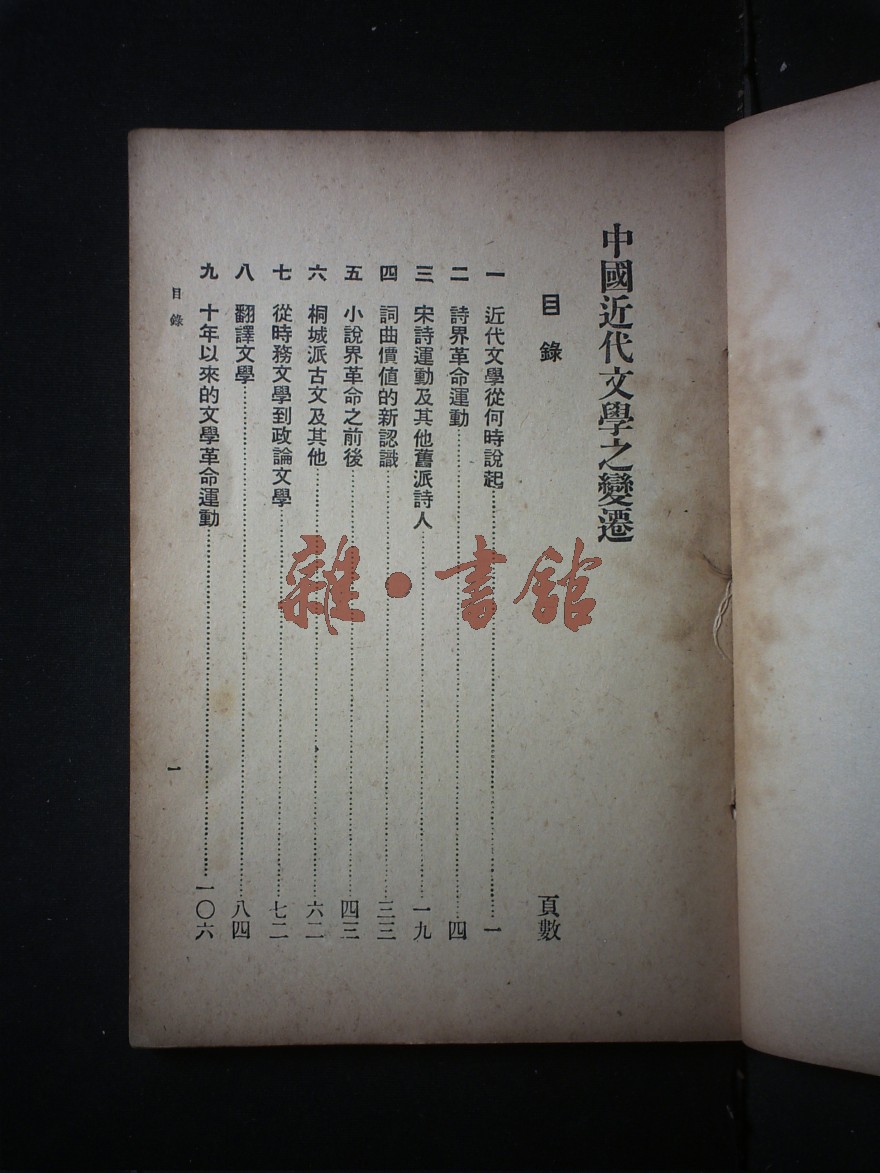 中國近代文學之變遷
目錄 頁數
一 近代文學從何時說起……一
二 詩界革命運動……四
三 宋詩運動及其他舊派詩人……一九
四 詞曲價值的新認識……三三
五 小說界革命之前後……四三
六 桐城派古文及其他……六二
七 從時務文學到政論文學……七二
八 翻譯文學……八四
九 十年以來的文學革命運動……一〇六
目錄 一
雜·書館